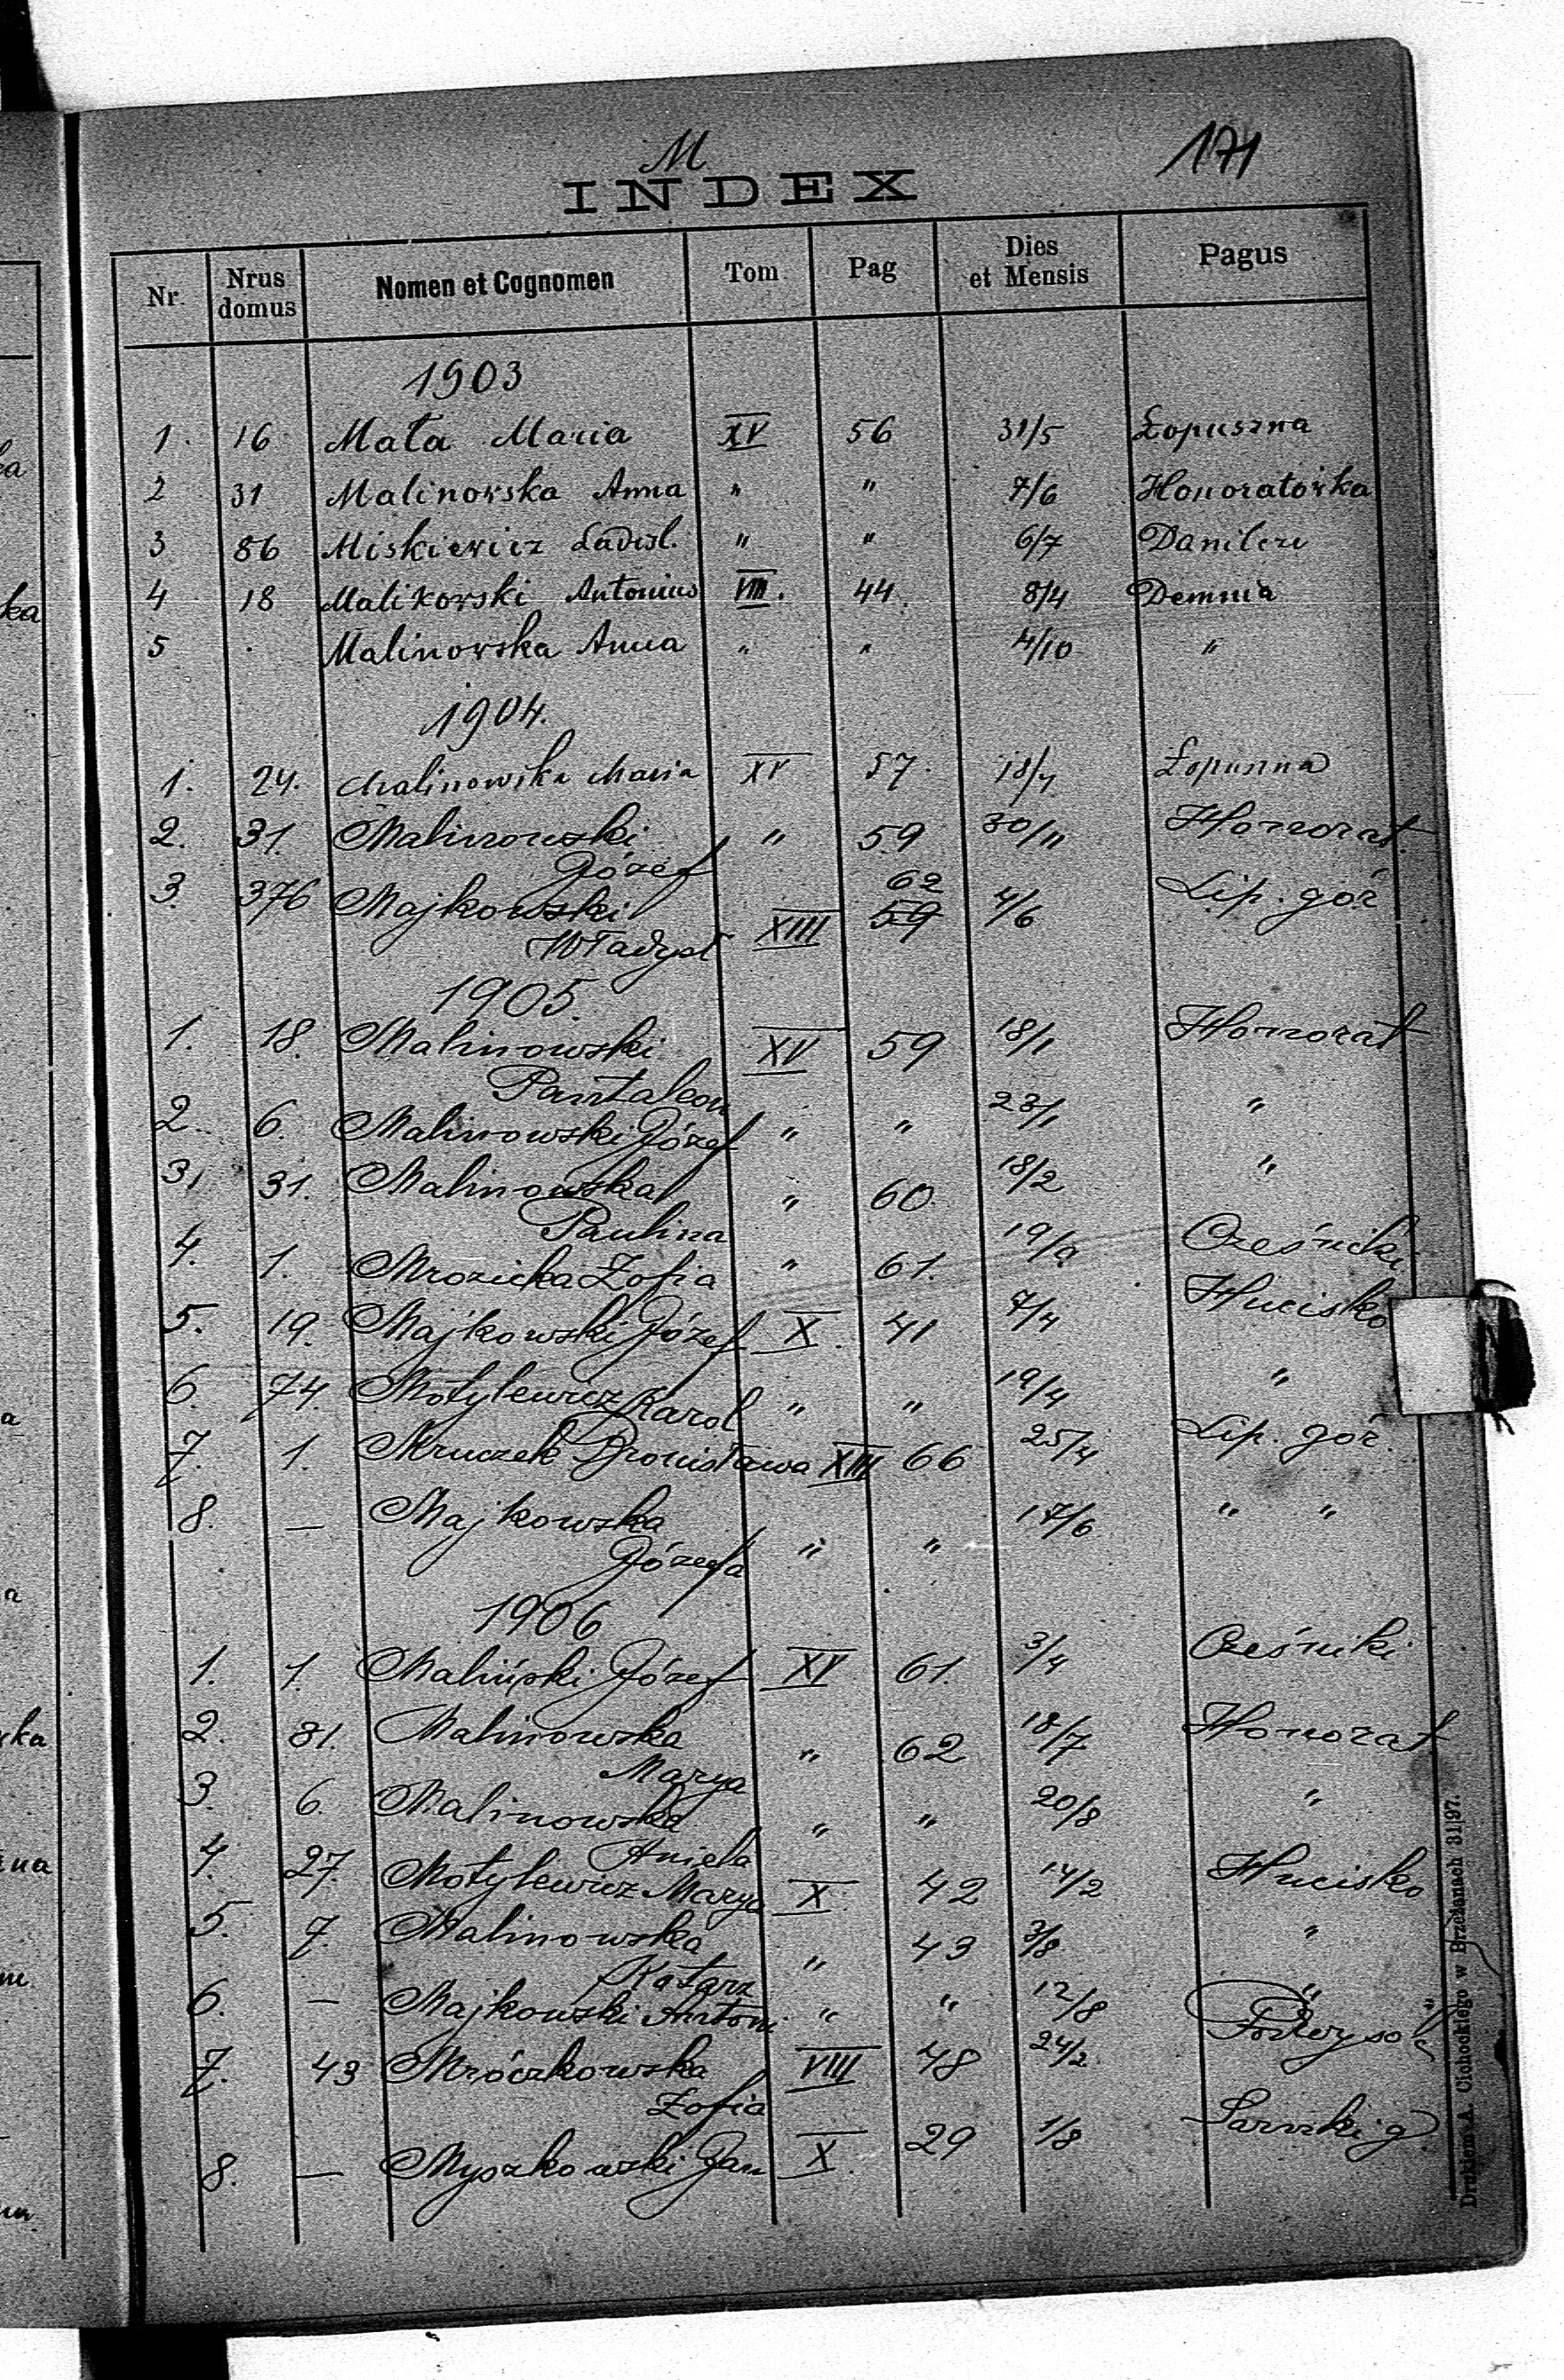 M
171
INDEX
Nr. Nrus domus Nomen et Cognomen Tom Pag Dies et Mensis Pagus
1903
1. 16 Mała Maria XV 56 31/5 Łopuszna
2 31 Malinowska Anna " " 7/6 Honoratówka
3 86 Miskiewicz Ladisl. " " 6/7 Danilcze
4 18 Malikowski Antonius VIII. 44. 8/4 Demnia
5 Malinowska Anna " " 4/10 "
1904.
1. 24. Malinowska Maria XV 57. Łopuszna
2. 31. Malinowski " 59 30/11 Honorat.
Józef
62
3. 376 Majkowski XIII 59 4/6 Lip. gór
Władysł
1905.
1. 18. Malinowski XV 59 18/1 Honorat
Pantaleon
2. 6. Malinowski Józef " " 23/1 "
3. 31. Malinowska " 60 18/2 "
Paulina
4. 1. Mrozicka Zofia " 61. 19/9 Cześniki
5. 19. Majkowski Józef X. 41 7/4 Hucisko
6. 74. Motylewicz Karol " " 19/4 "
7. 1. Mruczek Bronisława XIII 66 25/4 Lip. gór.
8. — Majkowska " " 17/6 " "
Józefa
1906
1. 1. Maliński Józef XV 61. 3/4 Cześniki
2. 31. Malinowska " 62 18/7 Honorat
Marya
3. 6. Malinowska " " 20/8 "
Aniela
4. 27. Motylewicz Marya X 42 14/2 Hucisko
5. 7. Malinowska " 43 3/8 "
Katarz
6. — Majkowski Antoni " " 12/8 "
7. 43 Mróczkowska VIII 48 24/2
Zofia
8. — Myszkowski Jan X. 29 1/8
Drukiem A. Cichockiego w Brzeżanach 31|97.